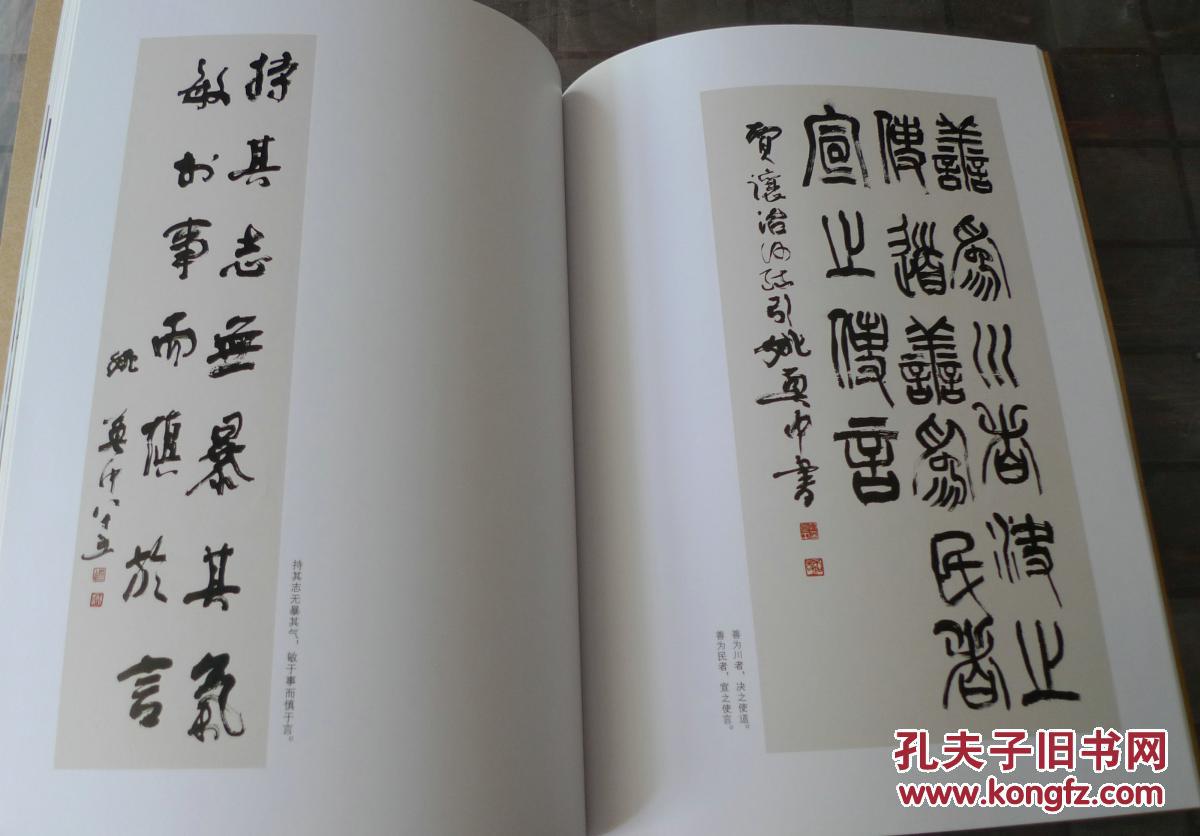 持其志無暴其氣
敏於事而慎於言
姚奠中八十五
持其志无暴其气，敏于事而慎于言。
善爲川者決之
使道善爲民者
宣之使言
賈讓治河語引姚奠中書
善为川者，决之使道。
善为民者，宣之使言。
孔夫子旧书网
www.kongfz.com